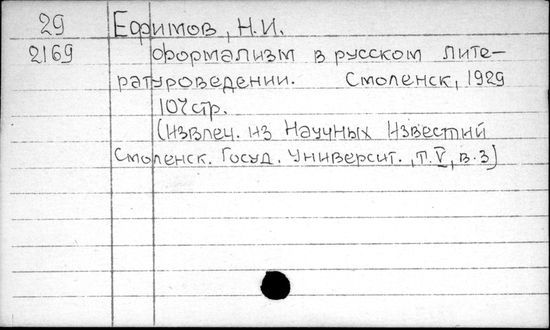 29 Ефимов, Н.И.
2169 Формализм в русском лите-
ратуроведении. Смоленск, 1929
107 стр.
(Извлеч. из Научных Известий
Смоленск. Госуд. Университ., т. V, в. 3)